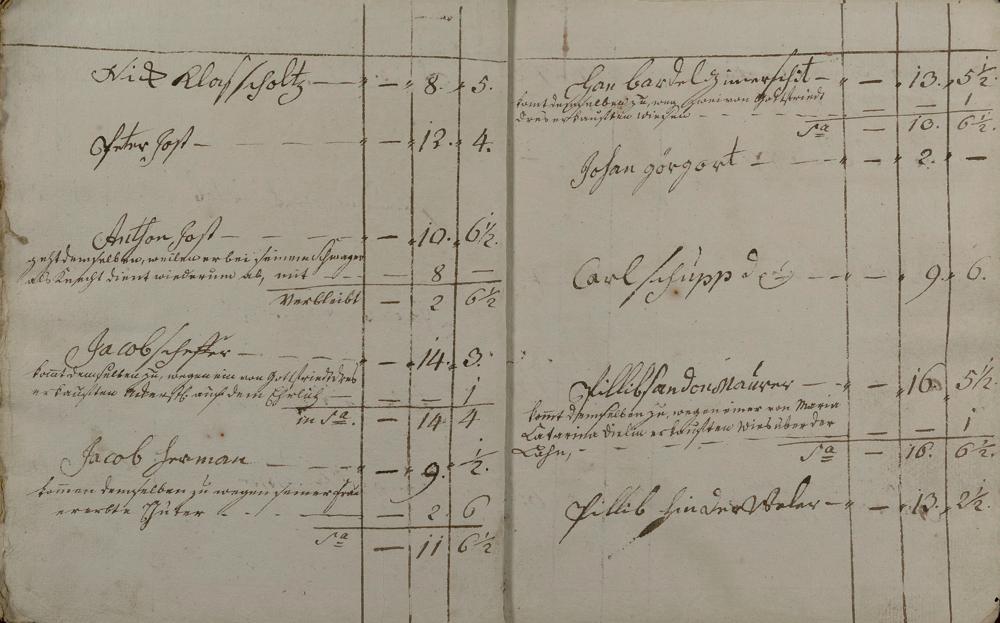 Nick Klossscholtz — " — " 8. " 5.
Peter Jost — " — " 12. " 4.
Anthon Jost — " — " 10. " 6½.
geht demselben, weilen er bei seinem Schwager
als Knecht dient wiederum ab, mit — — 8 —
Verbleibt — 2 6½
Jacob scheffer — " — " 14. " 3.
komt demselben zu, wegen ein von Gottfriedt dres
erkaufften auf dem — — 1
in Sa. — 14 4
Jacob Herman — " — " 9. " ½.
kommen demselben zu wegen seiner frau
ererbte Güter — — 2. 6
Sa — 11 6½
Johan bardel — " — " 13. " 5½
komt demselben zu, weg. zwei von Gottfriedt
dres erkaufften wiesen — — — 1
Sa — 13. 6½.
Johan görgort — " — " 2. " —
Carl schupp — " — " 9. " 6.
Pillibs Maurer — " — " 16. " 5½
komt demselben zu, wegen einer von Maria
Catarina dielm erkaufften wies über der
Lahn, — — — 1
Sa — 16. 6½
Pillib hinder — " — " 13. " 2½.